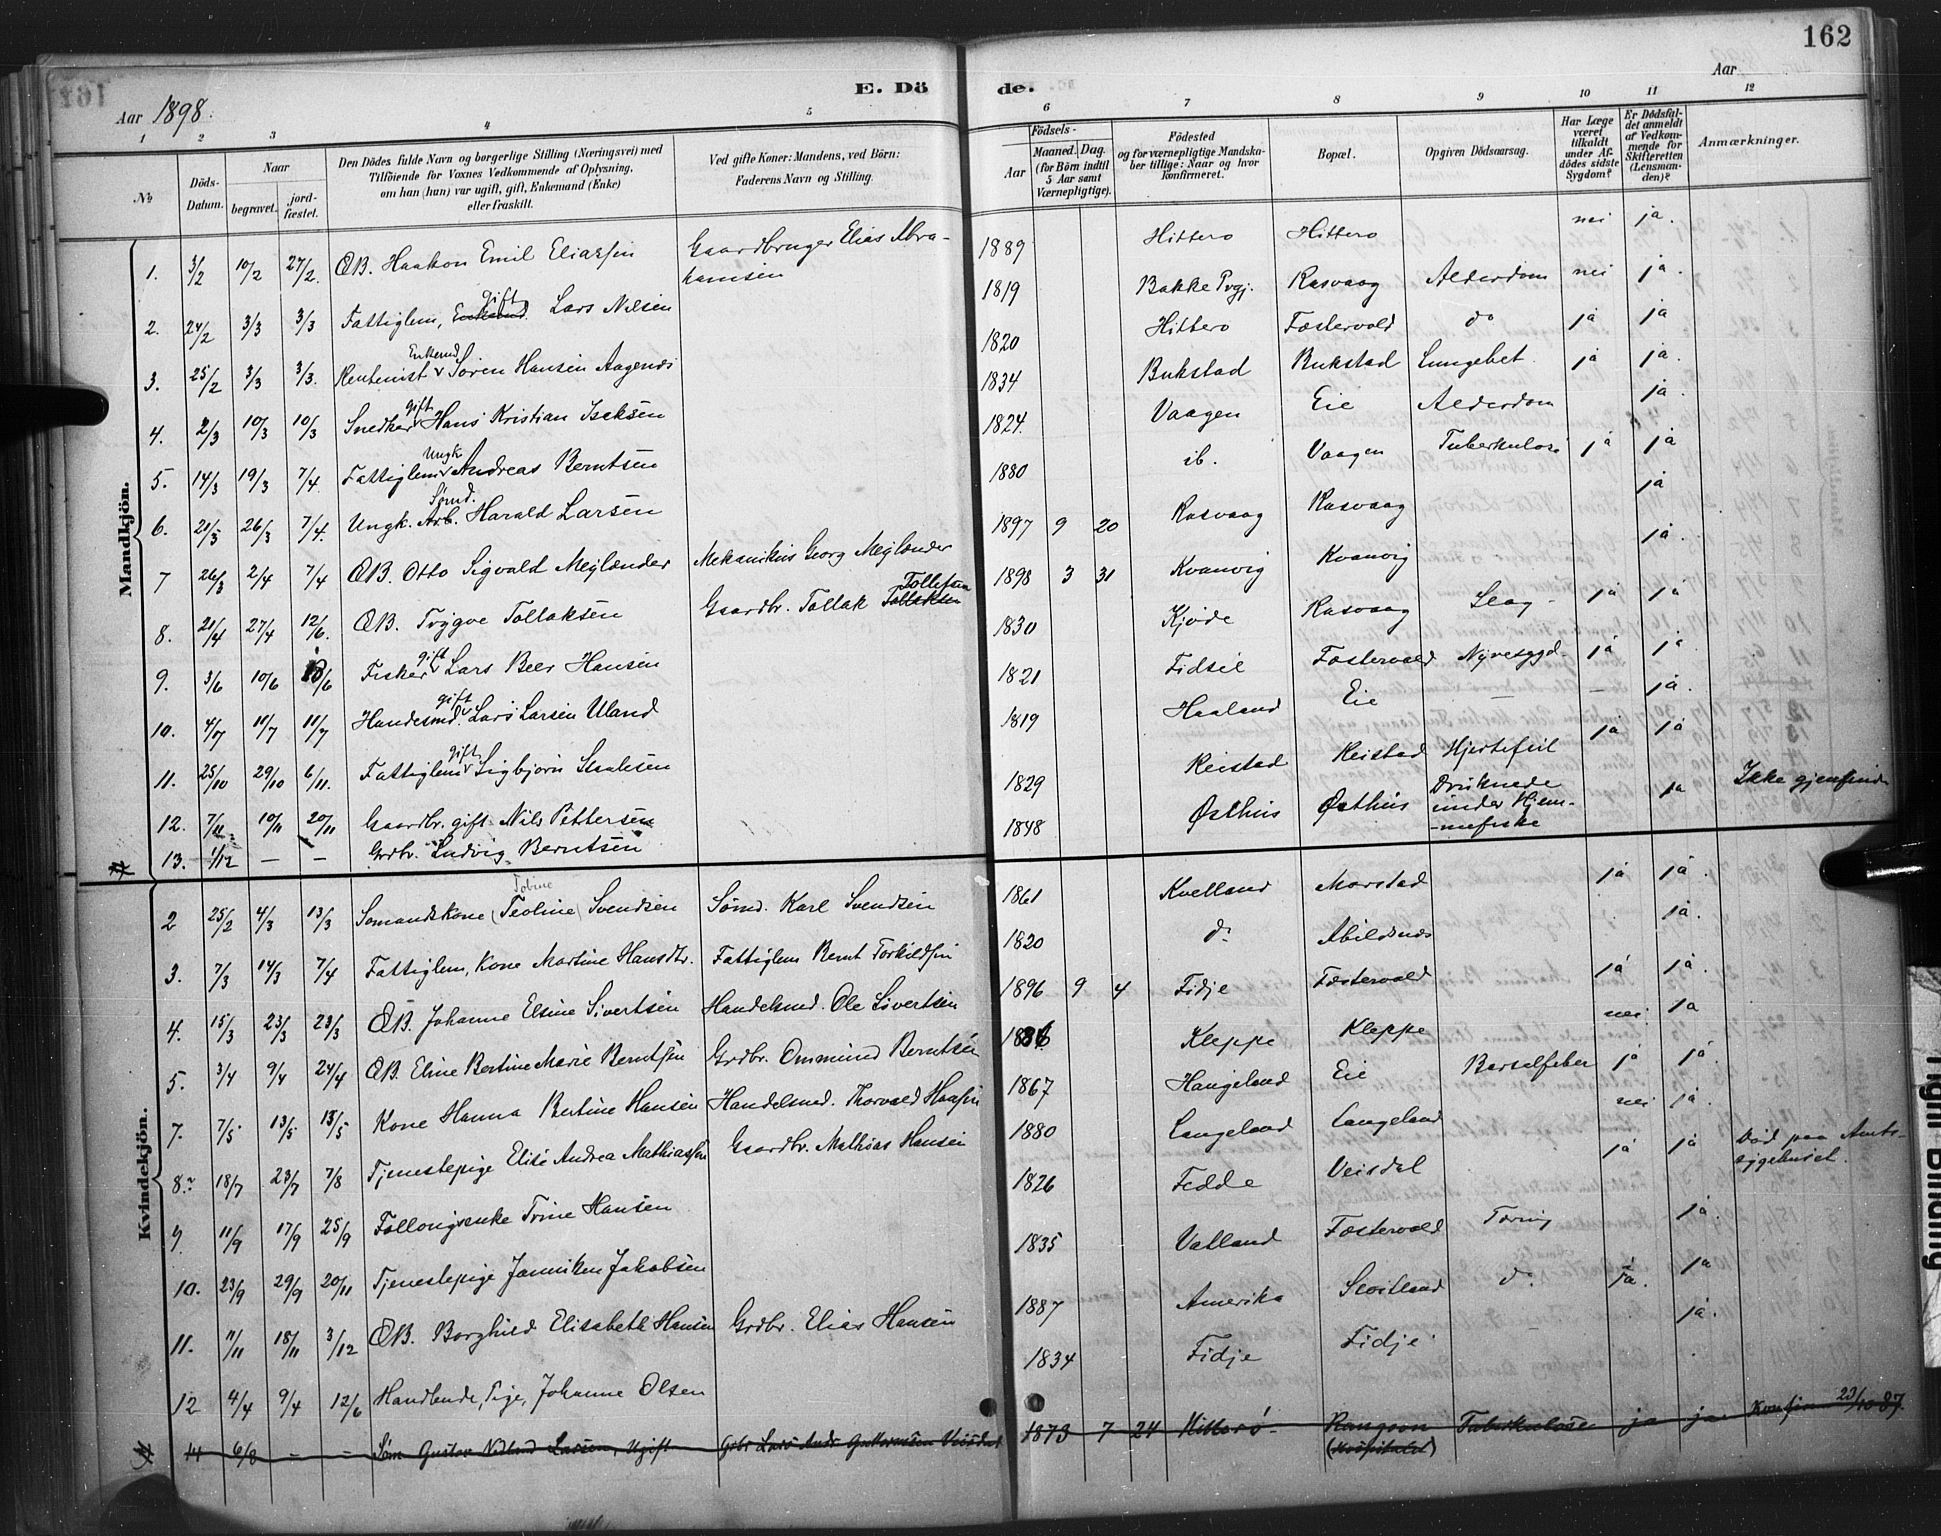 162
E. Dö de.
Aar 1898.
Aar
1 2 3 4 5 6 7 8 9 10 11 12
No
Döds-Datum.
Naar
begravet.
jordfæstet.
Den Dödes fulde Navn og borgerlige Stilling (Næringsvei) med
Tilföiende for Voxnes Vedkommende af Oplysning,
om han (hun) var ugift, gift, Enkemand (Enke)
eller fraskilt.
Ved gifte Koner: Mandens, ved Börn:
Faderens Navn og Stilling.
Födsels-
Aar
Maaned. Dag.
(for Börn indtil
5 Aar samt
Værnepligtige).
Födested
og for værnepligtige Mandska-
ber tillige: Naar og hvor
konfirmeret.
Bopæl.
Opgiven Dödsaarsag.
Har Læge
været
tilkaldt
under Af-
dödes sidste
Sygdom?
Er Dödsfal-
det anmeldt
af Vedkom-
mende for
Skifteretten
(Lensman-
den)?
Anmærkninger.
Mandkjön.
1. 3/2 10/2 27/2. ÆB. Haakon Emil Eliassen Gaardbruger Elias Abrahamsen 1889 Hitterø Hitterø nei ja.
2. 24/2 3/3 3/3 Fattiglem, gift Lars Nilsen 1819 Bakke Prgj. Rasvaag Alderdom nei ja.
3. 25/2 3/3 3/3. Rentenist Enkemd Sören Hansen Aagenes 1820 Hitterø Fostervold do ja ja
4. 2/3 10/3 10/3 Snedker gift Hans Kristian Isaksen 1834 Bukstad Bukstad Lungebet. ja ja.
5. 14/3 19/3 7/4. Fattiglem Ungk Andreas Berntsen 1824. Vaagen Eie Alderdom ja.
6. 21/3 26/3 7/4. Ungk. Sömd. Harald Larsen 1880 ib. Vaagen Tuberkulose ja ja
7 26/3 2/4 7/4 ÆB. Otto Sigvald Meglænder Mekanikus Georg Meglænder 1897 9 20 Rasvaag Rasvaag ja
8. 21/4 27/4 12/6. ÆB. Trygve Tollaksen Gaardbr. Tollak Tollefsen 1898 3 31 Kvanvig Kvanvig ja.
9. 3/6 10/6 /6 Fisker gift Lars Beer Hansen 1830 Kjøde Rasvaag Slag ja ja
10. 4/7 11/7 11/7 Handelsmd. gift Lars Larsen Uland 1821 Fidsel Fostervold Nyresygd. ja ja
11. 25/10 29/10 6/11. Fattiglem gift Sigbjørn Staalesen 1819 Haaland Eie — — ja.
12. 7/11 10/11 20/11 Gaardbr. gift Nils Pettersen 1829 Reistad Reistad Hjertefeil ja ja
13. 1/12 — — Grdbr. Ludvig Berntsen 1848 Østhus Østhus Druknede under Hjem- ja Ikke gjenfunden
Kvindekjön.
2 25/2 4/3 13/3 Sømandskone (Teoline) Tobine Svendsen Sömd. Karl Svendsen 1861 Kvelland Marstad ja ja.
3. 7/3 14/3 7/4 Fattiglem, Kone Martine Hansdtr. Fattiglem Bernt Torkildsen 1820 do Abildsnes ja.
4. 15/3 23/3 23/3 ÆB. Johanne Elsine Sivertsen Handelsmd. Ole Sivertsen 1896 9 4 Fidje Fostervold ja ja.
5. 3/4 9/4 24/4 ÆB. Eline Bertine Marie Berntsen Grdbr. Ommund Berntsen 1886 Kleppe Kleppe nei ja
7. 7/5 13/5 13/5 Kone Hanna Bertine Hansen Handelsmd. Thorvald Hansen 1867 Haugeland Eie Barselfeber ja ja.
8. 18/7 23/7 7/8 Tjenestepige Elise Andrea Mathiassen Gaardbr. Mathias Hansen 1880 Langeland Langeland nei ja. Død paa Amts-
sygehuset.
9 11/9 17/9 25/9 Follougsenke Trine Hansen 1826 Fedde Veisdal ja ja
10. 23/9 29/9 20/11 Tjenestepige Janniken Jakobsen 1835 Vatland Fostervold Tæring ja.
11. 11/11 18/11 3/12 ÆB. Borghild Elisabeth Hansen Grdbr. Elias Hansen 1887 Amerika Skoitland do ja. ja
12 4/4 9/4 12/6 Johanne Olsen 1834 Fidje Fidje ja.
14 6/8 — — Söm. Gustav Larsen, Ugift Grbr Lars Andr. 1873 7 24 Hitterö Rangoon (Hospitalet) Tuberkulose ja ja Konfirm 23/10 87.